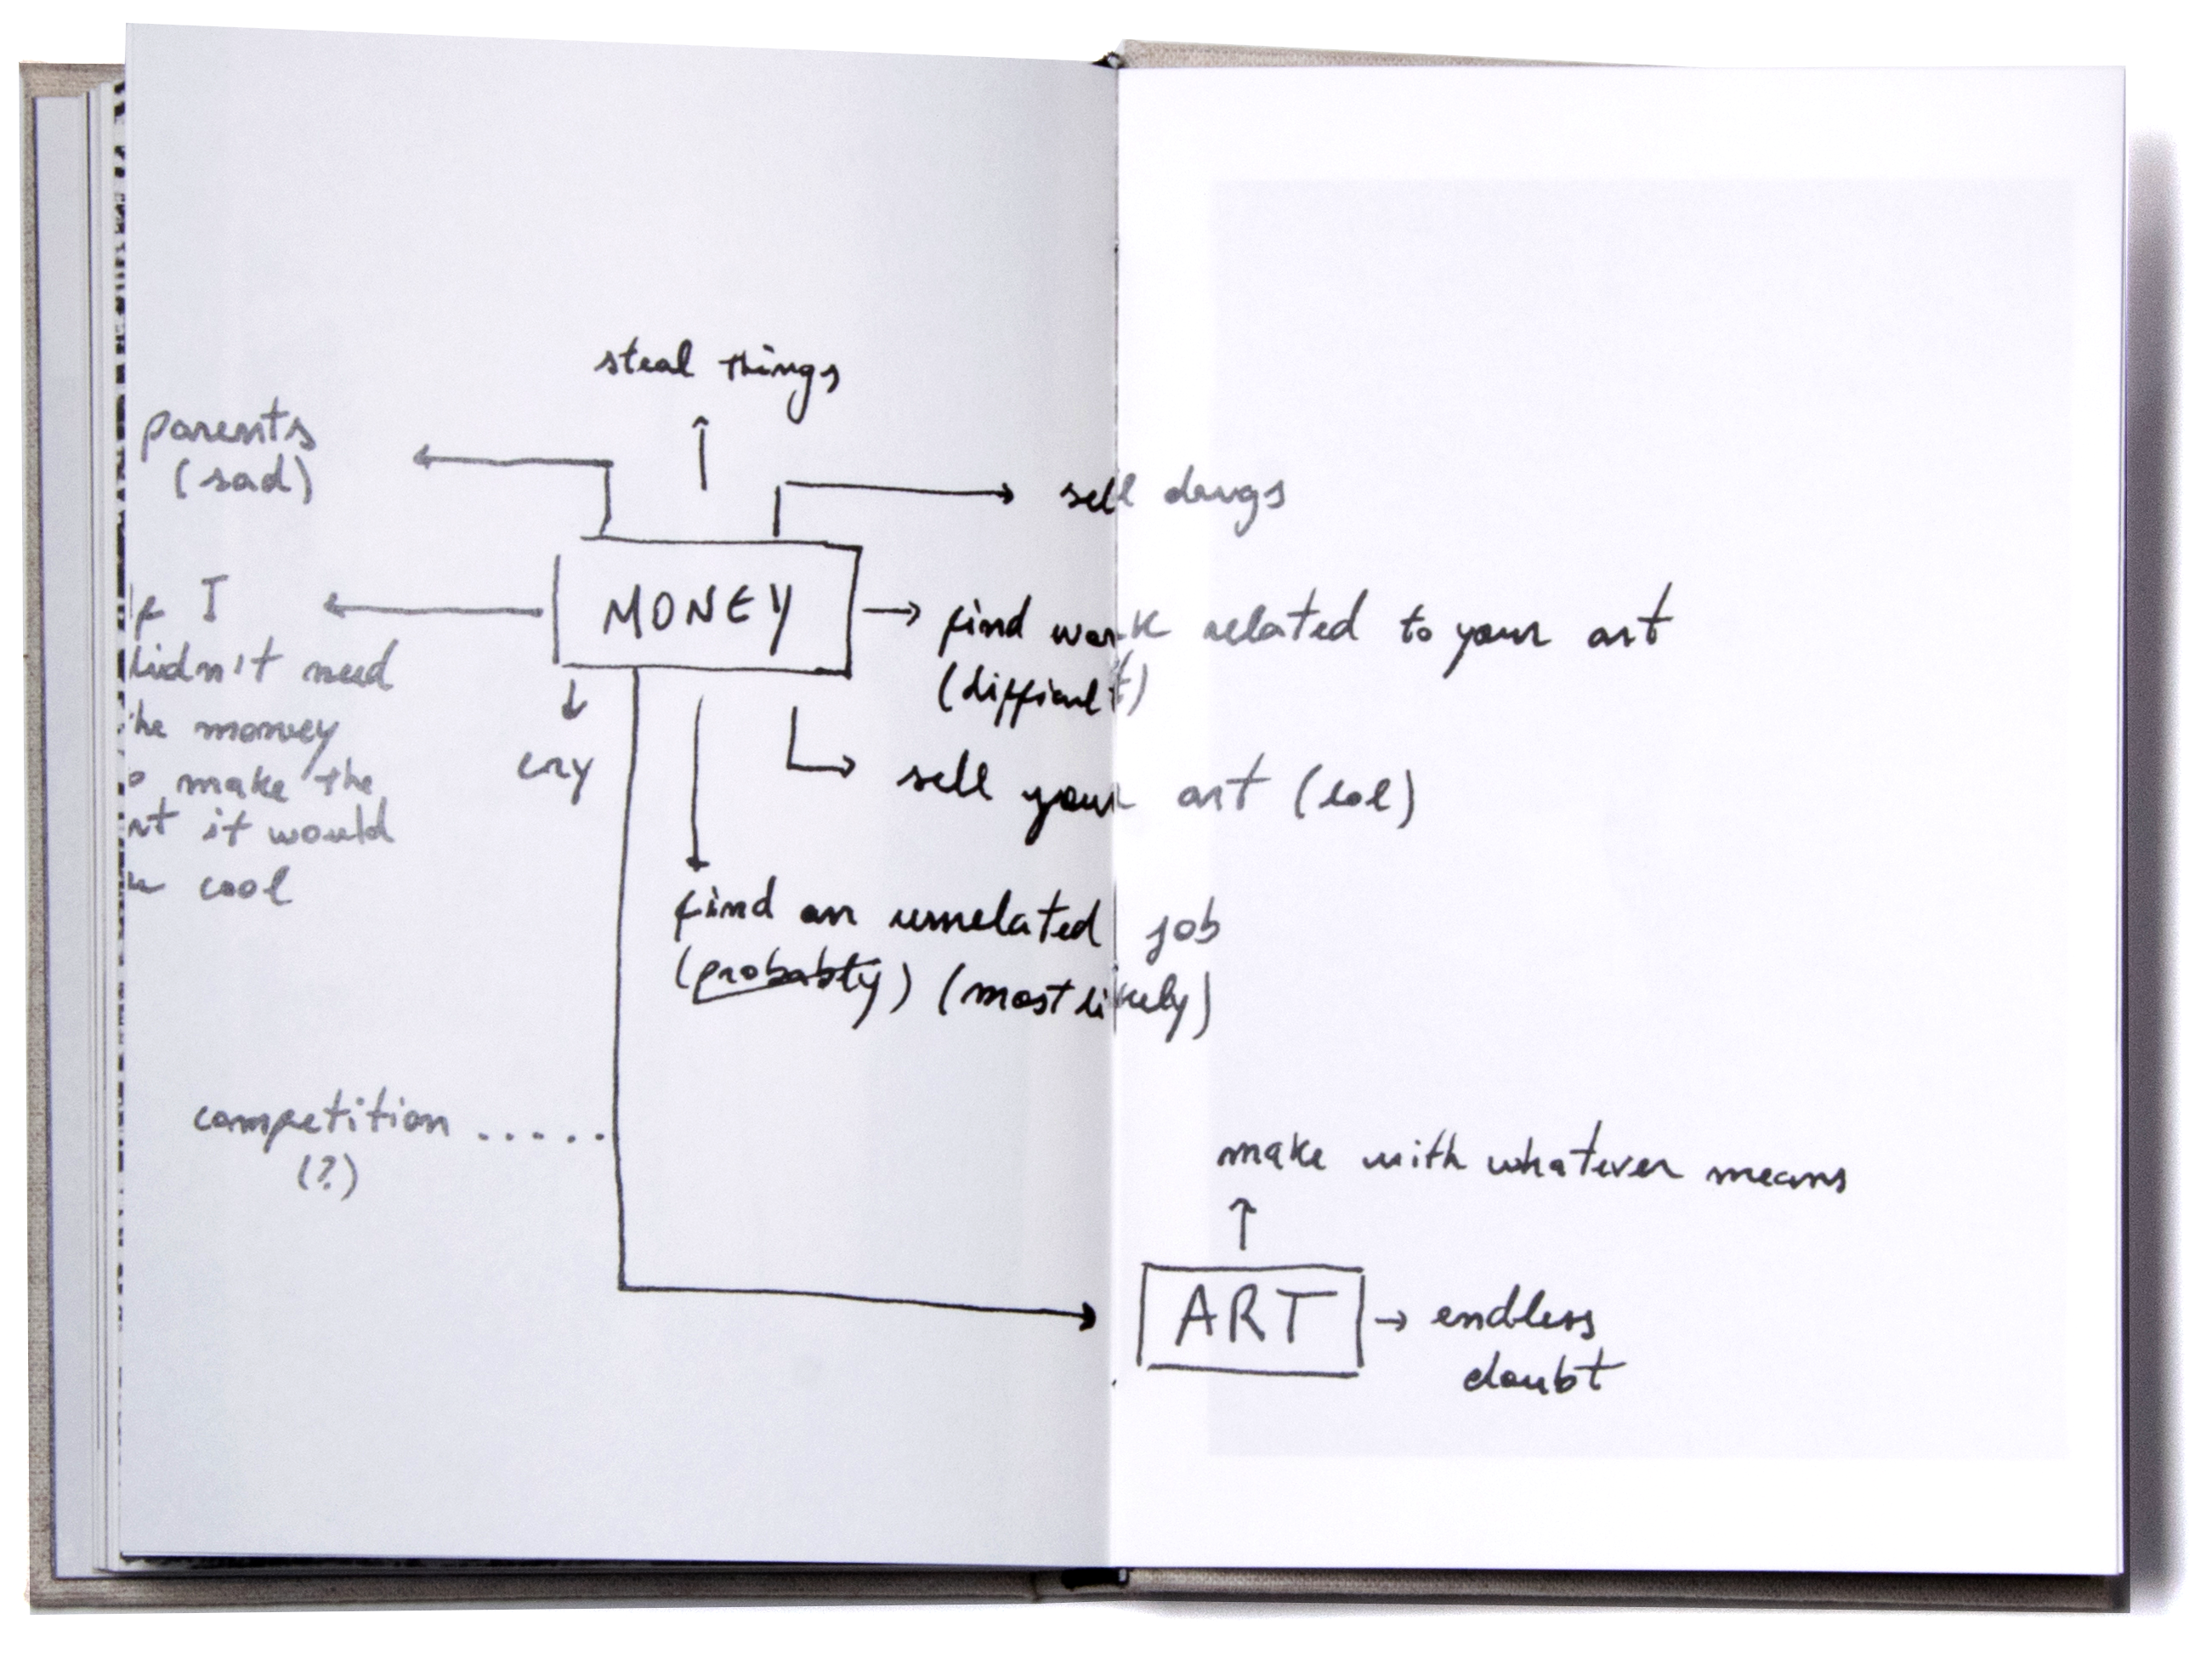 steal things
parents
(sad)
sell drugs
MONEY
I
didn't need
the money
make the
it would
cool
find work related to your art
(difficult)
cry
sell your art (lol)
find an unrelated job
(probably) (most likely)
competition .....
(?)
make with whatever means
ART
endless
doubt